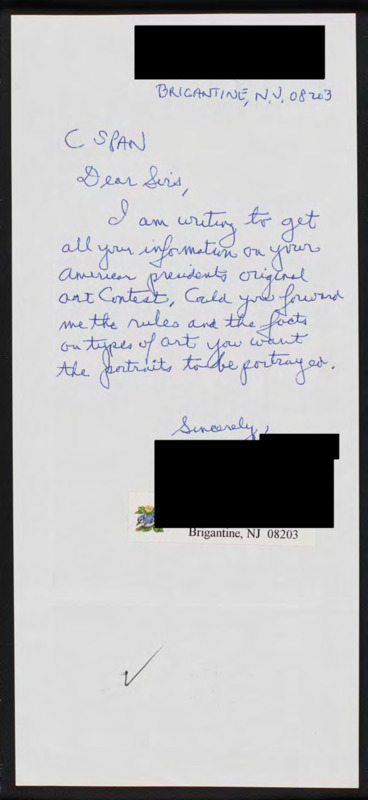 BRIGANTINE, N.J. 08203
C SPAN
Dear Sirs,
I am writing to get
all your information on your
american presidents original
art Contest. Could you forward
me the rules and the facts
on types of art you want
the portraits to be portrayed.
Sincerely,
Brigantine, NJ 08203